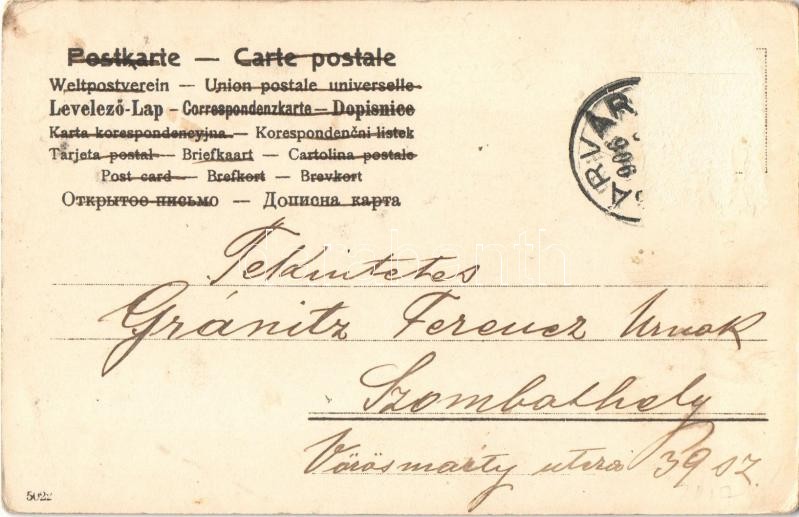 Postkarte — Carte postale
Weltpostverein — Union postale universelle
Levelező-Lap – Correspondenzkarte – Dopisnice
Karta korespondencyjna — Korespondenčni listek
Tarjeta postal — Briefkaart — Cartolina postale
Post card — Brefkort — Brevkort
Открытое письмо — Дописна карта
ÁRVÁR
906
Tekintetes
Gránitz Ferencz Urnak
Szombathely
Vörösmarty utcza 39 sz.
5022